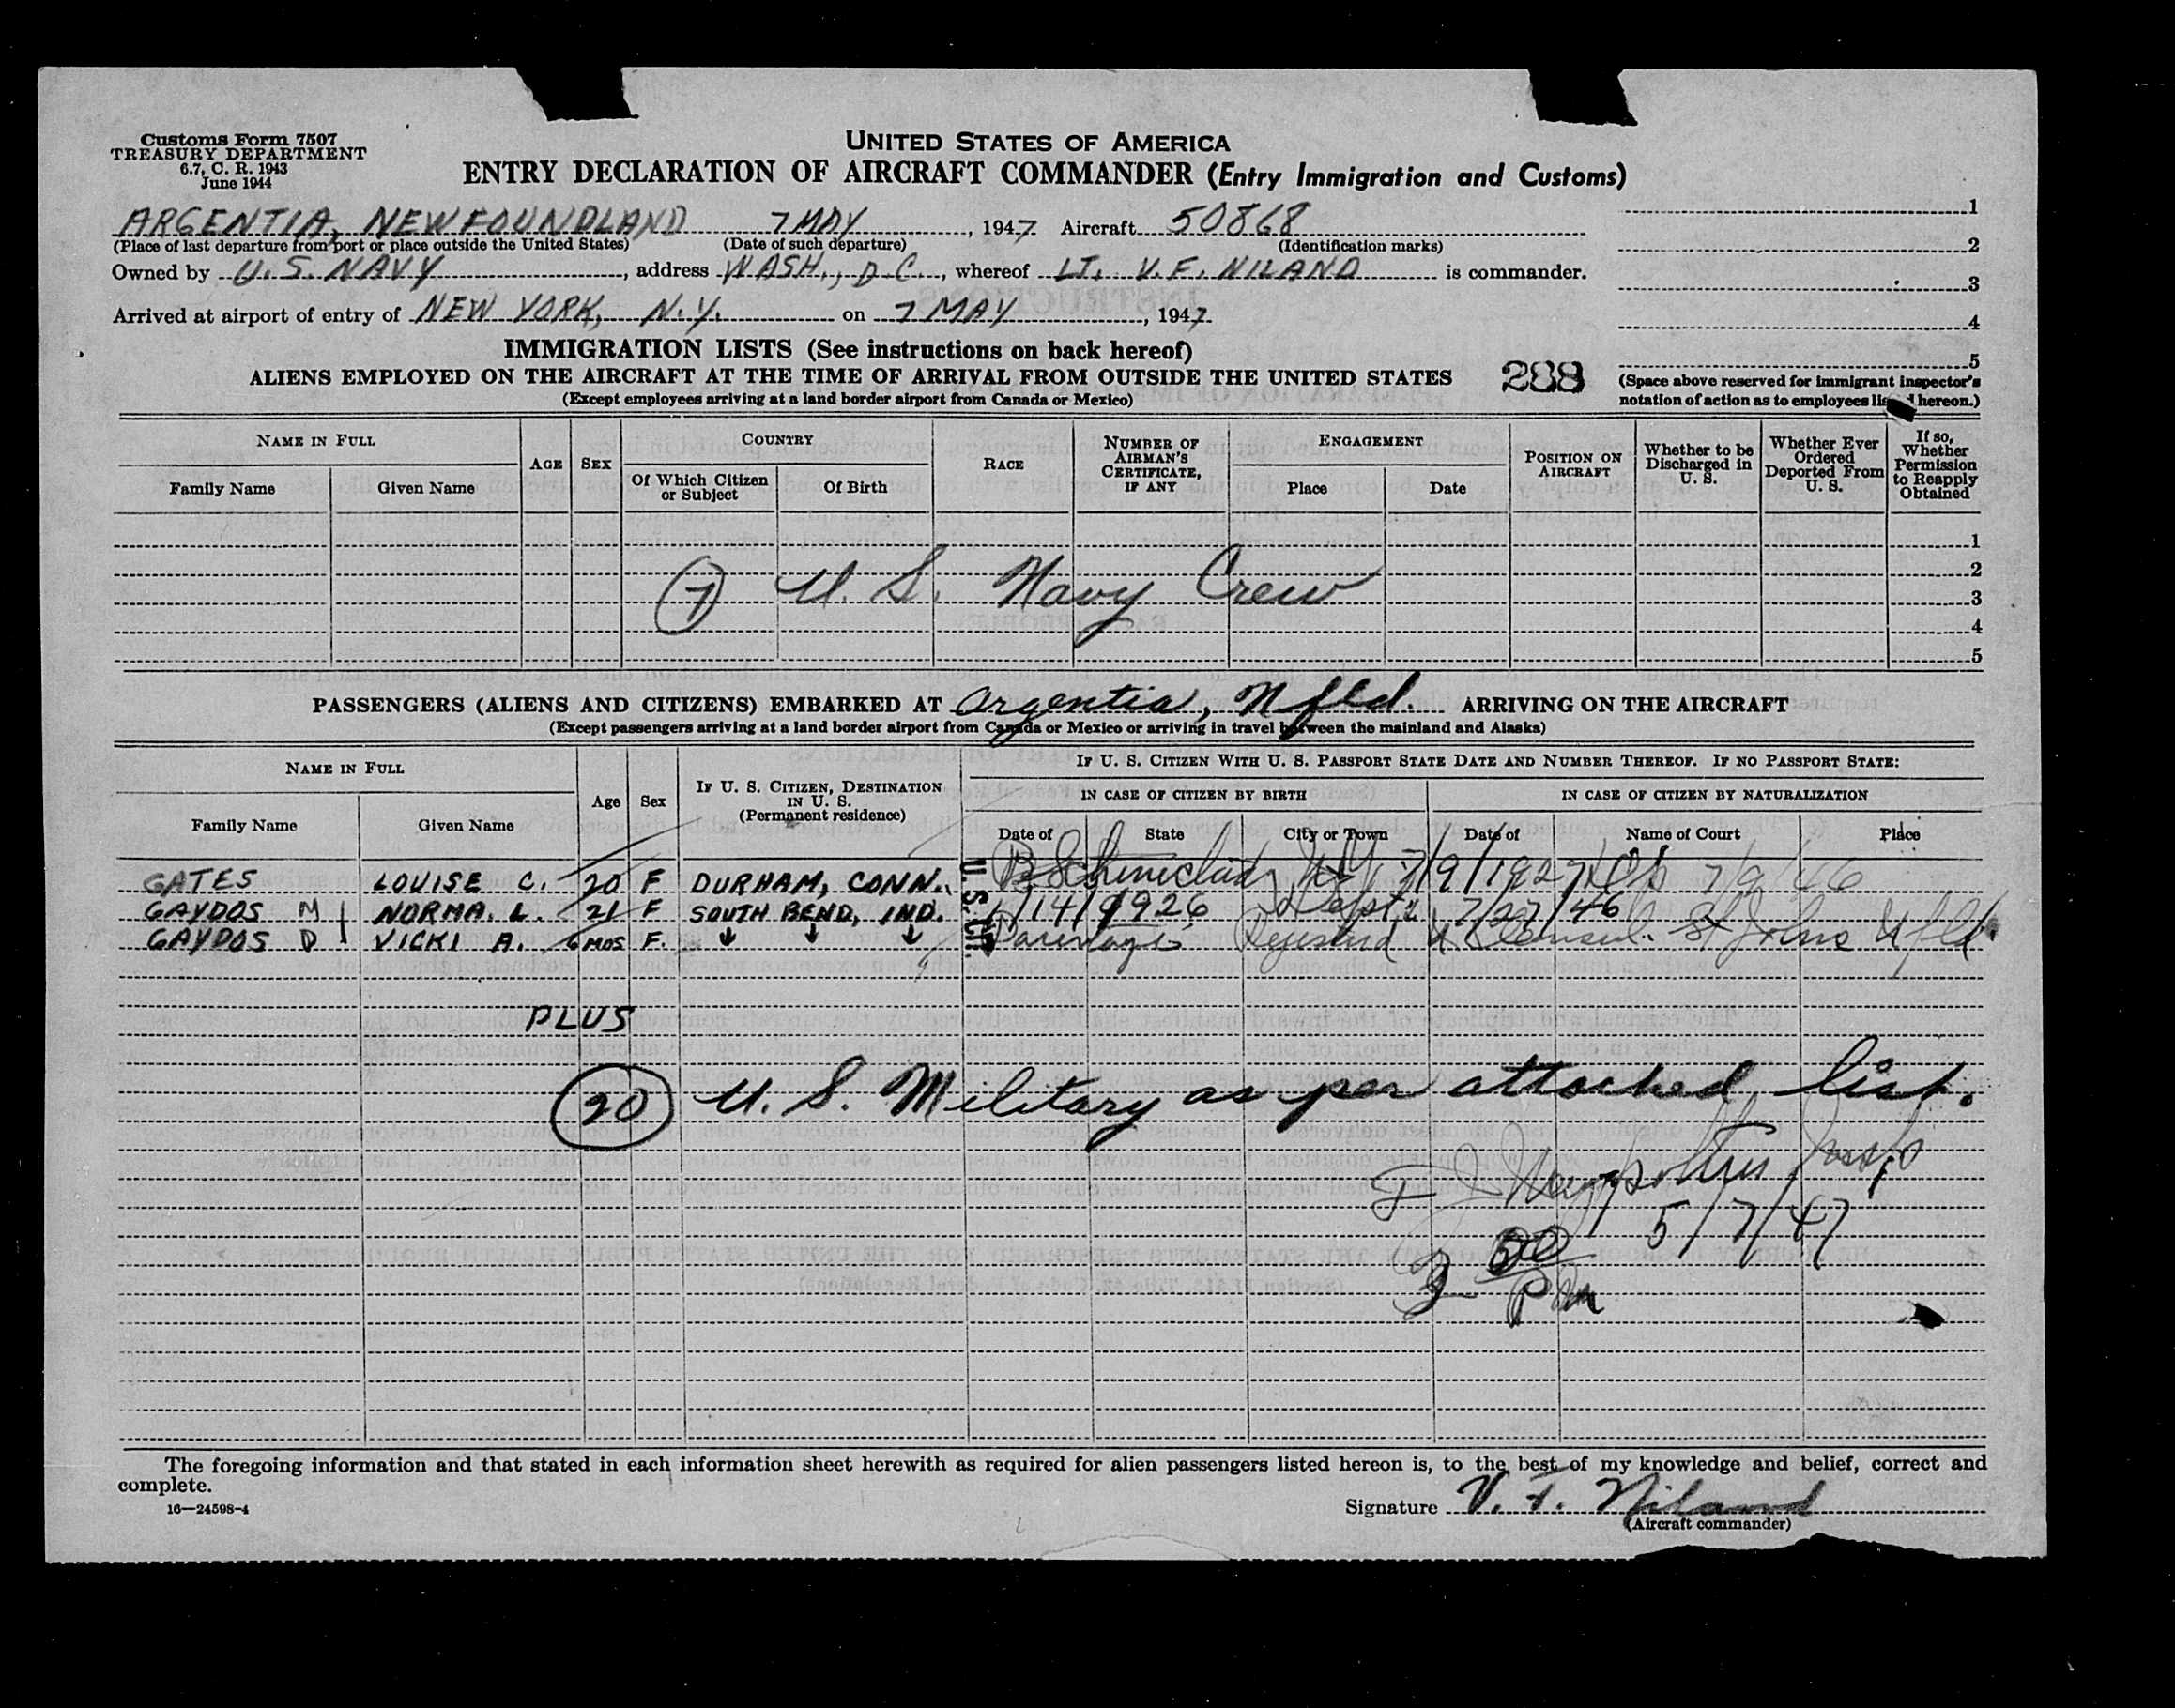 Customs Form 7507
TREASURY DEPARTMENT
6.7, C. R. 1943
June 1944
UNITED STATES OF AMERICA
ENTRY DECLARATION OF AIRCRAFT COMMANDER (Entry Immigration and Customs)
ARGENTIA, NEWFOUNDLAND 7 MAY, 1947 Aircraft 50868
(Place of last departure from port or place outside the United States) (Date of such departure) (Identification marks)
Owned by U. S. NAVY, address WASH., D.C., whereof LT. V. F. NILAND is commander.
Arrived at airport of entry of NEW YORK, N.Y. on 7 MAY, 1947
1
2
3
4
5
(Space above reserved for immigrant inspector's
notation of action as to employees listed hereon.)
IMMIGRATION LISTS (See instructions on back hereof)
ALIENS EMPLOYED ON THE AIRCRAFT AT THE TIME OF ARRIVAL FROM OUTSIDE THE UNITED STATES 288
(Except employees arriving at a land border airport from Canada or Mexico)
NAME IN FULL
Family Name Given Name
AGE
SEX
COUNTRY
Of Which Citizen or Subject
Of Birth
RACE
NUMBER OF AIRMAN'S CERTIFICATE, IF ANY
ENGAGEMENT
Place Date
POSITION ON AIRCRAFT
Whether to be Discharged in U. S.
Whether Ever Ordered Deported From U. S.
If so, Whether Permission to Reapply Obtained
1
2
7 U. S. Navy Crew 3
4
5
PASSENGERS (ALIENS AND CITIZENS) EMBARKED AT Argentia, Nfld. ARRIVING ON THE AIRCRAFT
(Except passengers arriving at a land border airport from Canada or Mexico or arriving in travel between the mainland and Alaska)
NAME IN FULL
Family Name Given Name
Age
Sex
IF U. S. CITIZEN, DESTINATION IN U. S. (Permanent residence)
IF U. S. CITIZEN WITH U. S. PASSPORT STATE DATE AND NUMBER THEREOF. IF NO PASSPORT STATE:
IN CASE OF CITIZEN BY BIRTH IN CASE OF CITIZEN BY NATURALIZATION
Date of State City or Town Date of Name of Court Place
GATES LOUISE C. 20 F DURHAM, CONN. NY 7/9/1927 7/9/46
GAYDOS M NORMA. L. 21 F SOUTH BEND, IND. 1/14/1926 7/27/46
GAYDOS D VICKI A. 6 MOS F. Parentage Consul. St Johns Nfld
U.S. CIT.
PLUS
20 U. S. Military as per attached list.
Insp
5/7/47
3 50 PM
The foregoing information and that stated in each information sheet herewith as required for alien passengers listed hereon is, to the best of my knowledge and belief, correct and
complete.
16—24598-4
Signature V. F. Niland
(Aircraft commander)